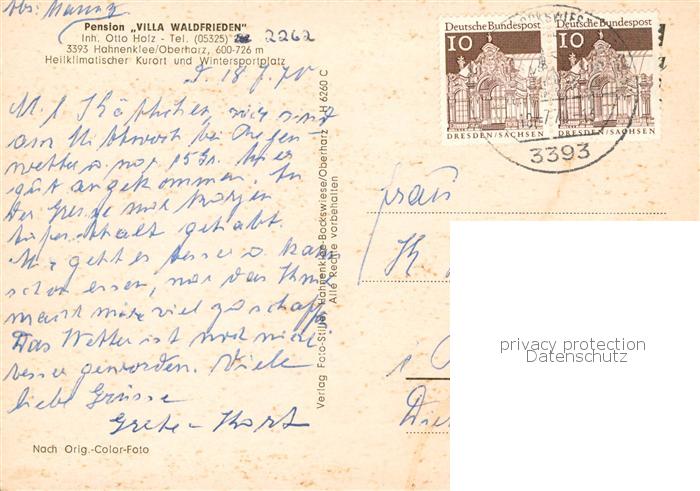 Abs:
Pension „VILLA WALDFRIEDEN"
Inh. Otto Holz - Tel. (05325) 2262
3393 Hahnenklee/Oberharz, 600-726 m
Heilklimatischer Kurort und Wintersportplatz
18. 7. 70
M. l. Käthchen, wir sind
am Mittwoch bei Regen-
wetter u. nur 15 Gr. hier
gut angekommen. In
der Grenze nur kurzen
Aufenthalt gehabt.
Mir geht es besser u. kann
schon essen, nur das Knie
macht mir viel zu schaff.
Das Wetter ist noch nicht
besser geworden. Viele
liebe Grüsse
Grete
Nach Orig.-Color-Foto
Verlag Foto-Stiller Hahnenklee-Bockswiese/Oberharz H 6260 C
Alle Rechte vorbehalten
Deutsche Bundespost
10
DRESDEN/SACHSEN
Deutsche Bundespost
10
DRESDEN/SACHSEN
3393
Frau
privacy protection
Datenschutz